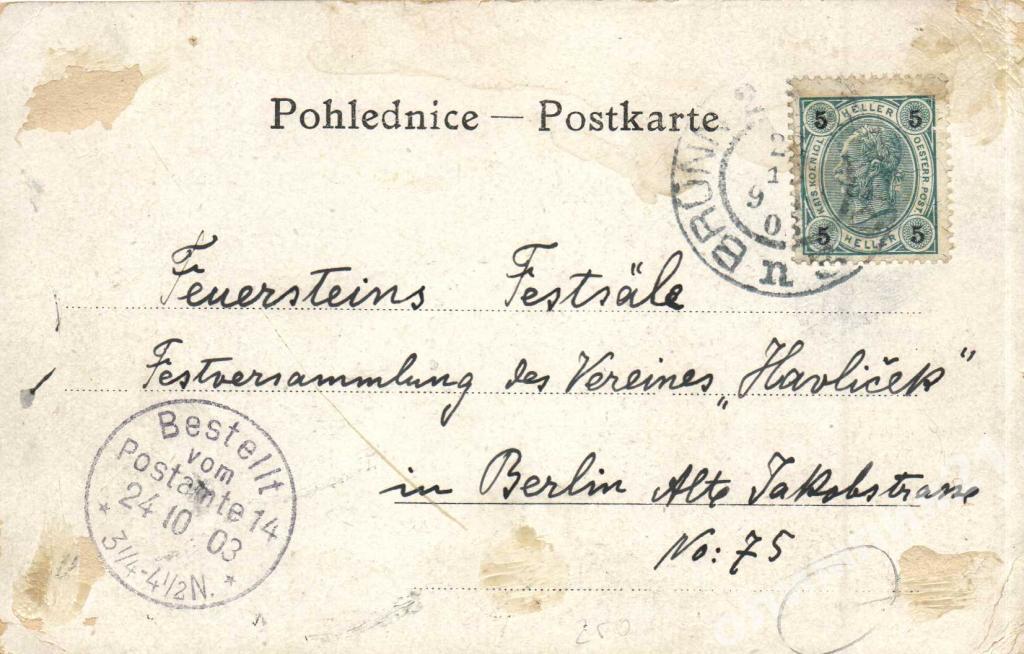 Pohlednice — Postkarte
5 HELLER 5
KAIS. KOENIGL.
OESTERR. POST.
5 HELLER 5
BRÜNN
Feuersteins Festsäle
Festversammlung des Vereines „Havlíček"
in Berlin Alte Jakobstrasse
No: 75
Bestellt
vom
Postamte 14
24 10 03
* 3 1/4-4 1/2 N. *
250